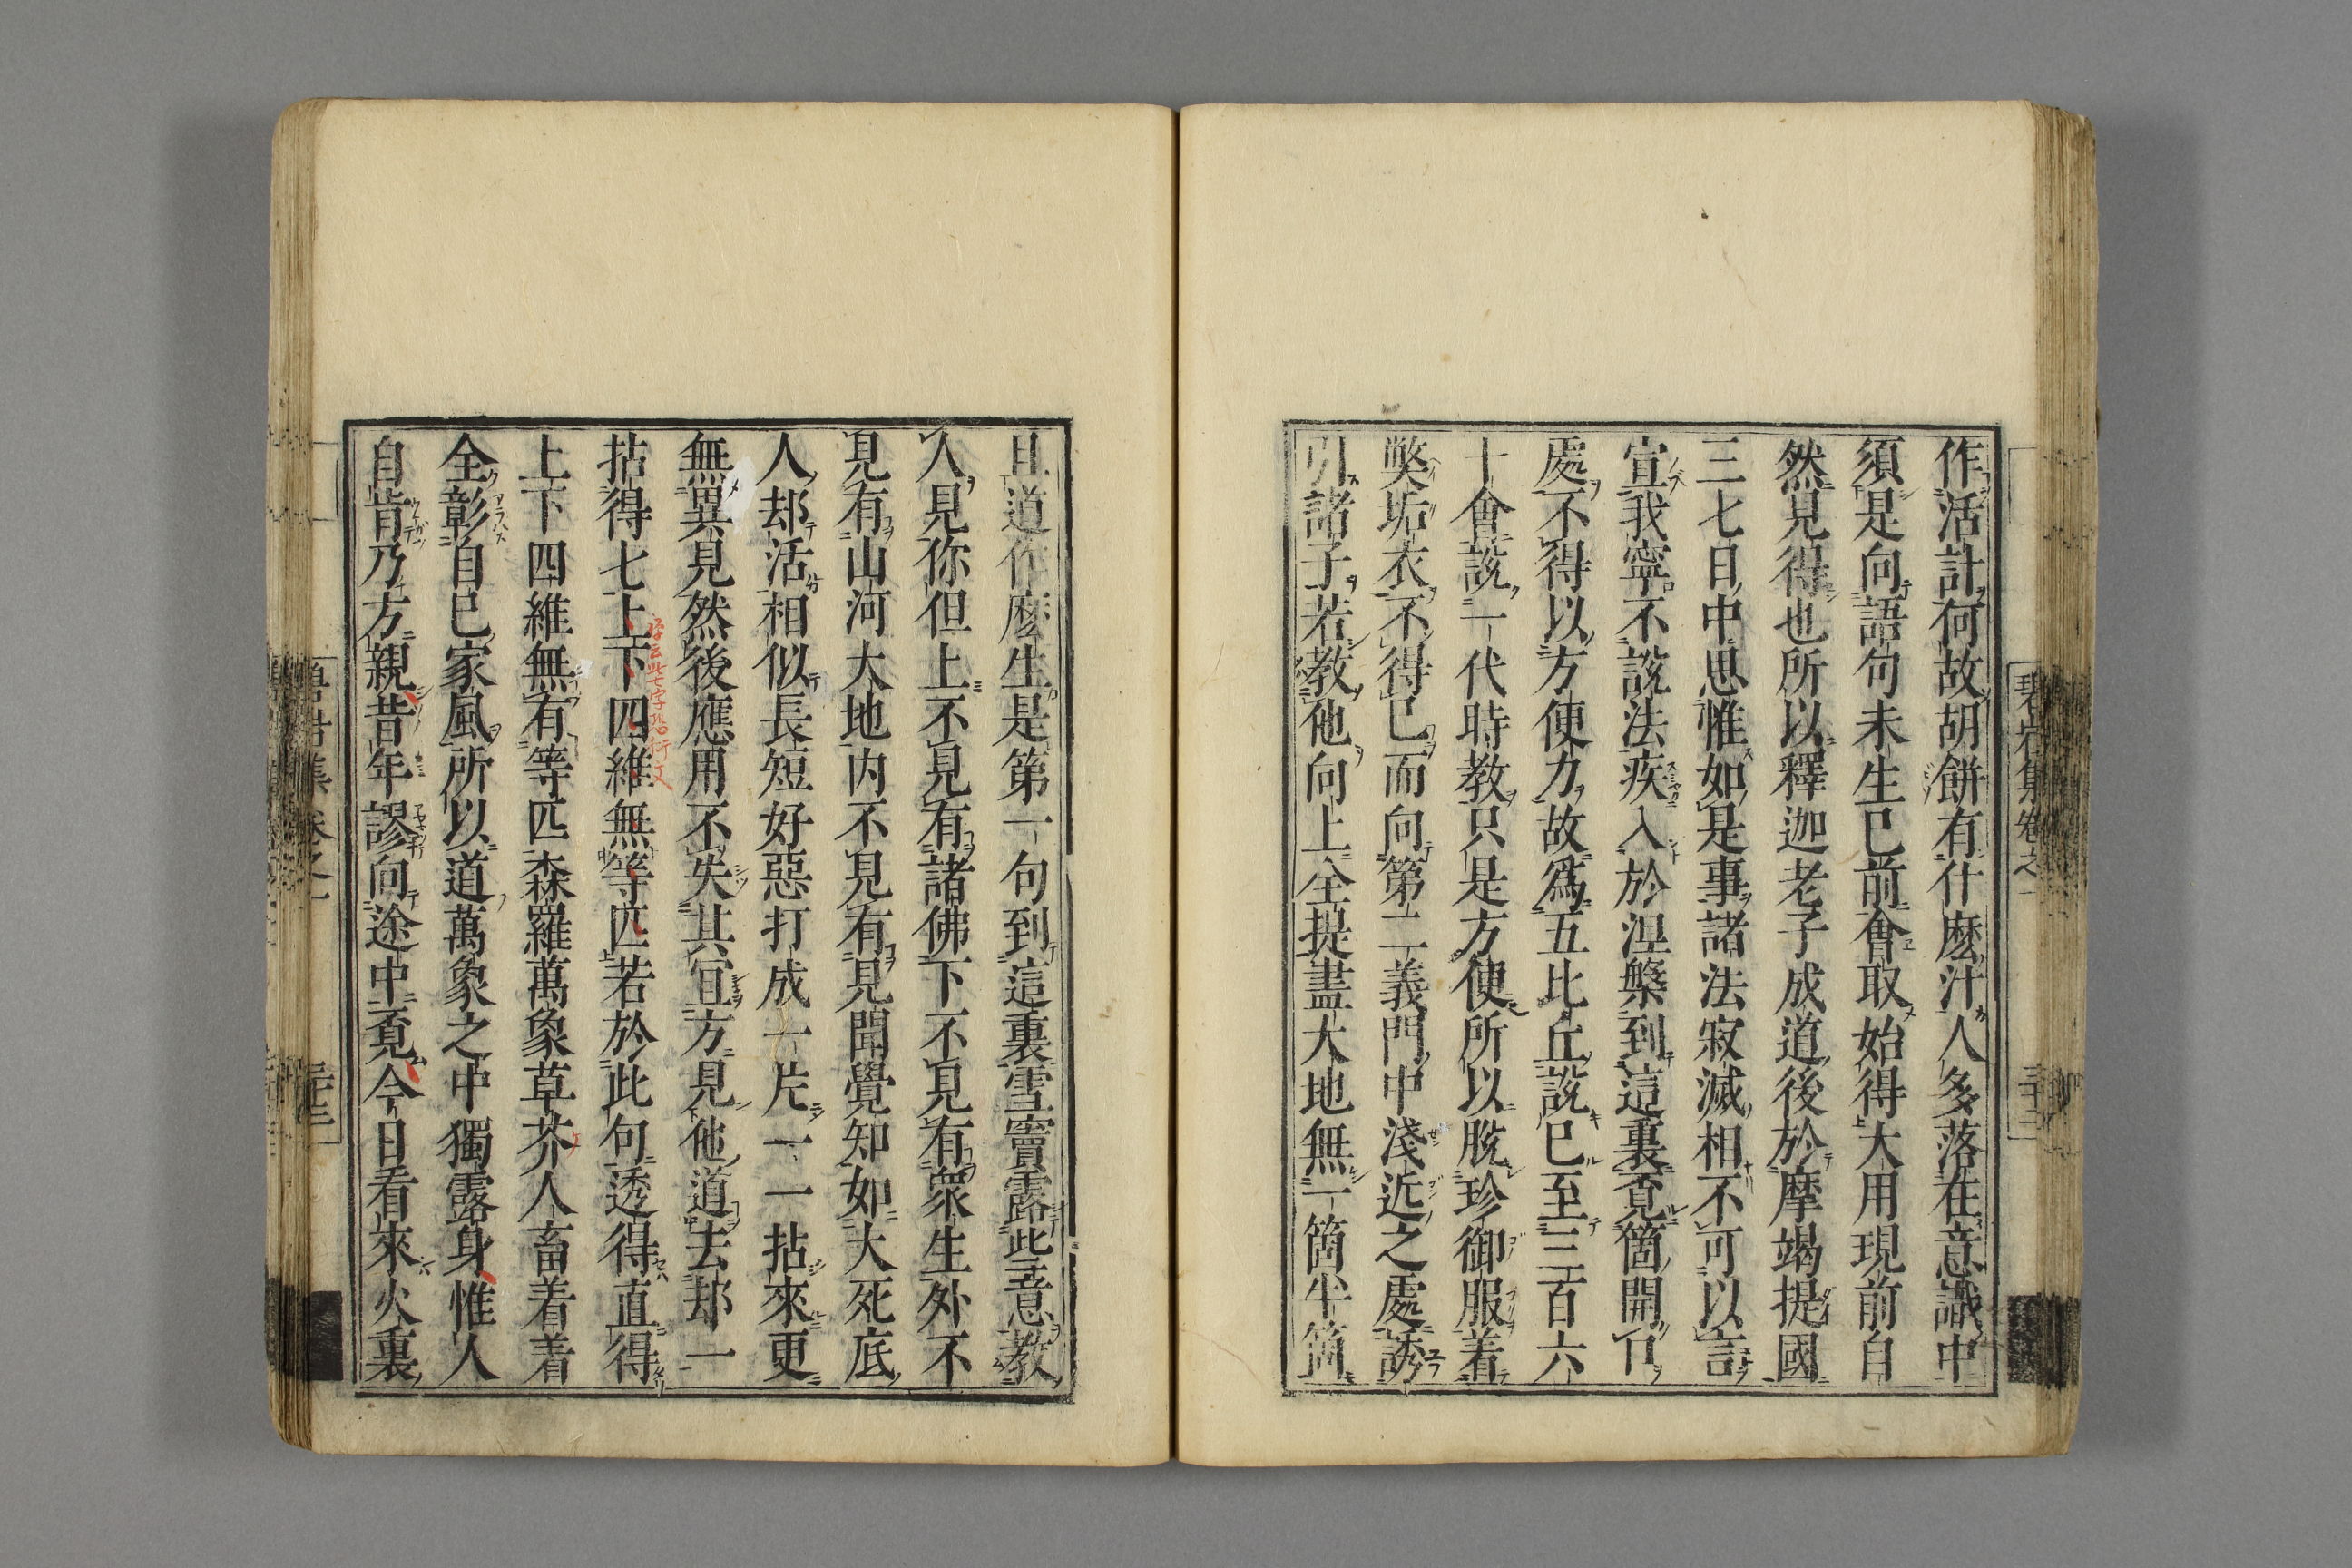 作活計何故胡餅有什麽汁人多落在意識中
須是向語句未生已前會取始得大用現前自
然見得也所以釋迦老子成道後於摩竭提國
三七日中思惟如是事諸法寂滅相不可以言
宣我寧不說法疾入於涅槃到這裏覓箇開口
處不得以方便力故爲五比丘說已至三百六
十會說一代時教只是方便所以脫珍御服着
獘垢衣不得已而向第二義門中淺近之處誘
引諸子若教他向上全提盡大地無一箇半箇
且道作麽生是第一句到這裏雪竇露些意教
人見你但上不見有諸佛下不見有衆生外不
見有山河大地内不見有見聞覺知如大死底
人却活相似長短好惡打成一片一一拈來更
無異見然後應用不失其宜方見他道去却一
拈得七上下四維無等匹若於此句透得直得
上下四維無有等匹森羅萬象草芥人畜着着
全彰自己家風所以道萬象之中獨露身惟人
自肯乃方親昔年謬向途中覓今日看來火裏
碧岩集卷之一